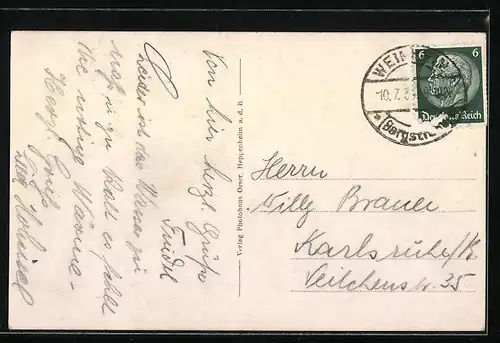 Von hier herzl. Grüße
Friedel
Leider ist das Wasser zu
naß u. zu kalt es fehlt
die nötige Wärme-
Herzl. Gruß
Verlag Photohaus Oeser, Heppenheim a. d. B.
WEINHEIM
10.7.3
(Bergstr.
6 6
Deutsches Reich
Herrn
Willy Brauer
Karlsruhe/B.
Veilchenstr. 35